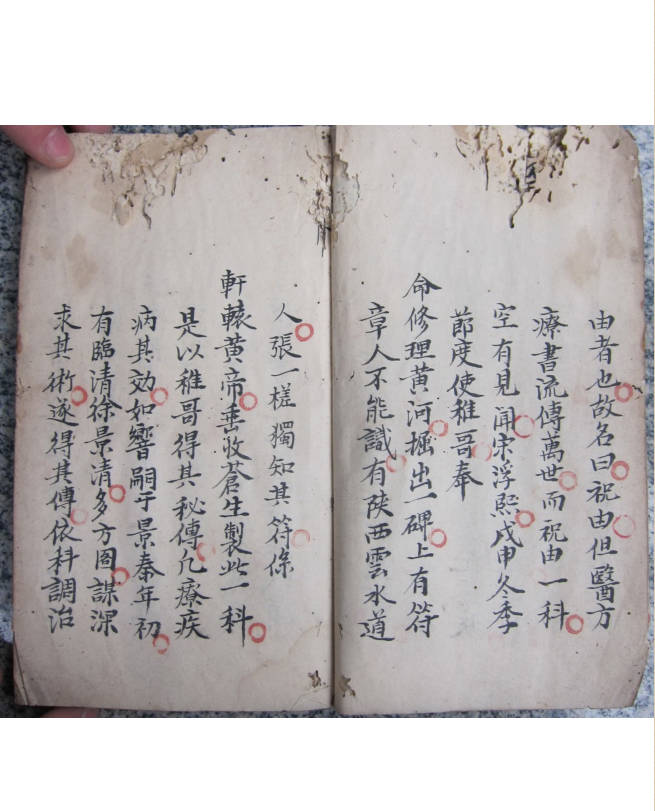 由者也故名曰祝由但醫方
療書流傳萬世而祝由一科
空有見聞宋淳熙戊申冬季
節度使雅哥奉
命修理黃河掘出一碑上有符
章人不能識有陝西雲水道
人張一槎獨知其符係
軒轅黃帝垂收蒼生製此一科
是以雅哥得其秘傳凡療疾
病其效如響嗣于景泰年初
有臨清徐景清多方圖謀深
求其術遂得其傳依科調治